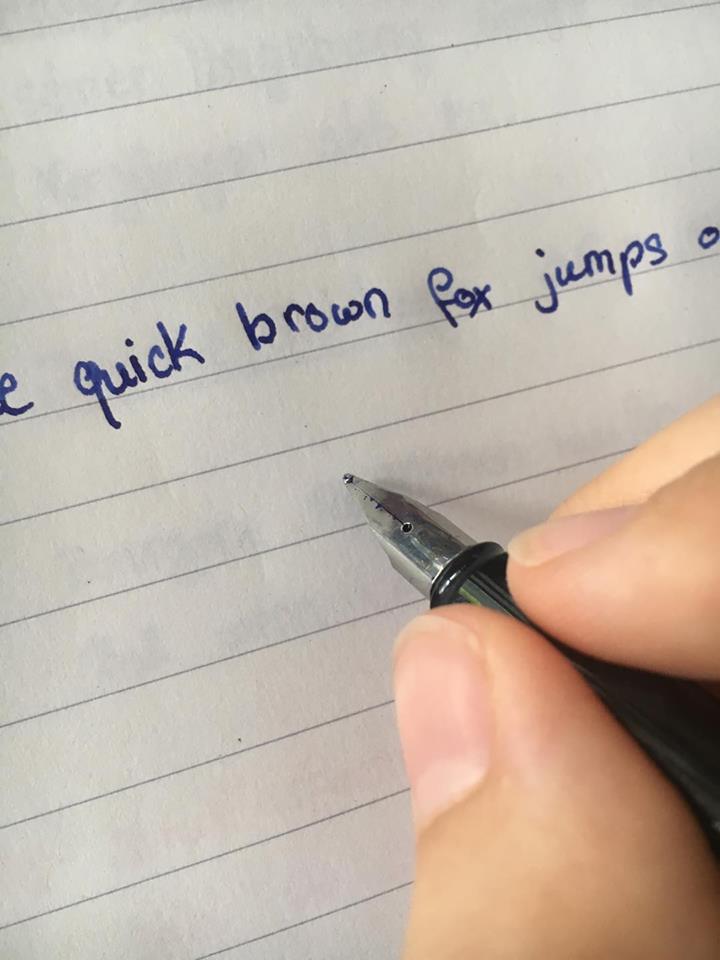 e quick brown fox jumps o